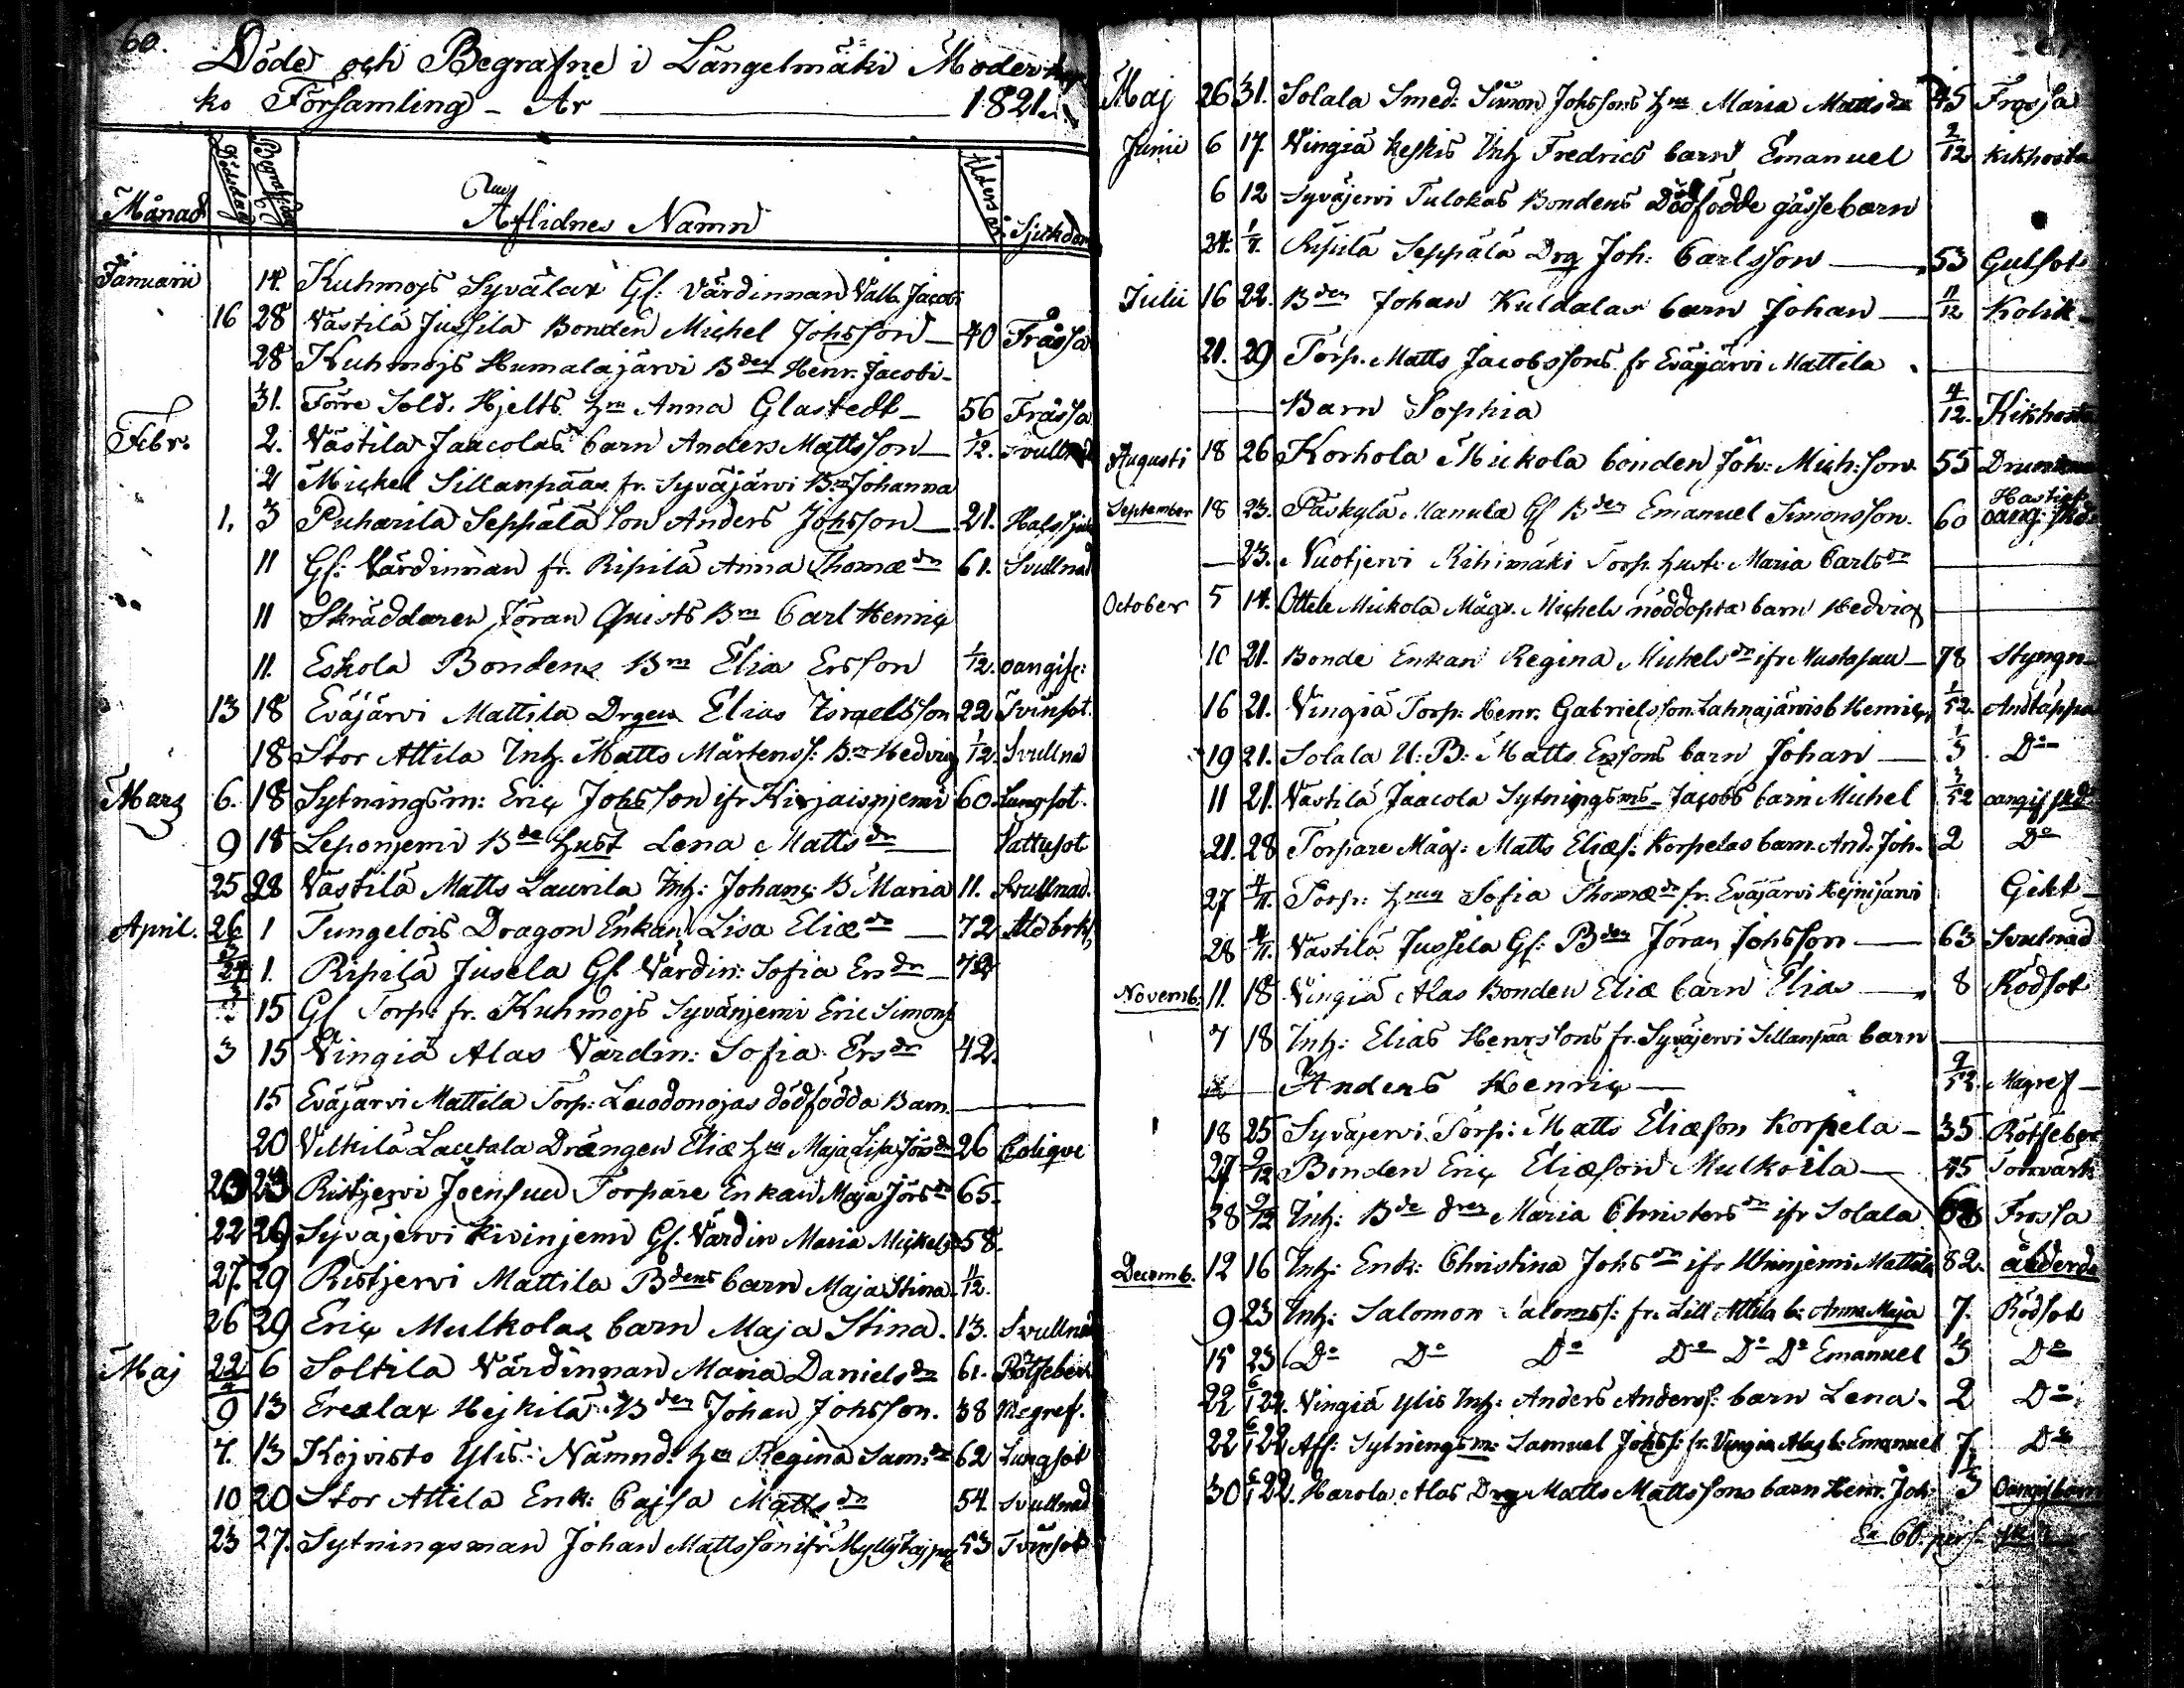 60.
Döde och Begrafne i Längelmäki Moder
ko Församling - År 1821.
Månad Dödedag Begrafn.dag Aflidnes Namn Ålders år Sjukdom
Januarii 14. Kuhmojs Syvälax Gf: Värdinnan Valb. Jacobi
16 28 Västilä Jussila Bonden Michel Johsson 40 Fråssa
28 Kuhmojs Humalajärvi Bden Henr. Jacobi
31. Förre Sold. Hjelts hru Anna Glastedt 56 Fråssa
Febr. 2. Västila Jaacolas barn Anders Mattsson /12. Svullnad
2 Michel Sillanpääs fr. Syväjärvi Bn Johanna
1. 3 Puharila Seppälä Son Anders Johsson 21. Halssjuk
11 Gf: Värdinnan fr. Ripilä Anna Thomædr 61. Svullnad
11 Skräddaren Jöran Quists Bn Carl Henric
11. Eskola Bondens Bn Elia Ersson 1/12. oangif:
13 18 Eväjärvi Mattila Drgen Elias Israelsson 22 Tvinsot.
18 Stor Attila Inh. Matts Mårtenss: Bn Hedvig 1/12. Svullna
Mars 6. 18 Sytningsm: Eric Johsson ifr Kirjaisnjemi 60 Lungsot.
9 18 Leponjemi Bde hust Lena Mattsdr Vattusot
25 28 Västilä Matts Laurila Inh: Johans B Maria 11. Svullnad.
April. 26/3 1 Tungelois Dragon Enkan Lisa Eliædr 72 Åldbrkh
24/3 1. Ripilä Jusela Gf Värdin: Sofia Ersdr 72
15 Gf Torp: fr. Kuhmojs Syvänjemi Eric Simons
3 15 Vingiä Alas Värdin: Sofia Ersdr 42.
15 Eväjärvi Mattila Torp: dödfödda Barn
20 Vilkilä Lautala Drängen Eliæ hru Maja Lisa Jörsdr 26 Colique
23 23 Ristjervi Joensuu Torpare Enkan Maja Jörsdr 65.
22 29 Syväjervi Kivinjemi Gf. Värdin Maria Michelsdr 58.
27 29 Ristjervi Mattila Bdens barn Maja Stina 11/12.
26 29 Eric Mulkolas barn Maja Stina. 13. Svullnad
Maj 22/4 6 Soltila Värdinnan Maria Danielsdr 61. Rötfeber
9 13 Erealax Hejkilä Bden Johan Johsson. 38 Magref.
7. 13 Kojvisto Ylis: Nämnd: hru Regina Sam:dr 62 Lungsot
10 20 Stor Attila Enk: Cajsa Mattsdr 54. Svullnad
23 27. Sytningsman Johan Mattsson ifr 53 Tvinsot
Maj 26 31. Solala Smed: Simon Johssons hru Maria Mattsdr 45 Frossa
Junii 6 17. Vingiä Keskis Inh Fredrics barn Emanuel 2/12 Kikhosta
6 12 Syväjervi Tulokas Bondens Dödfödde gåssebarn
24. 1/7. Ripilä Seppälä Drg Joh: Carlsson 53 Gulsot
Julii 16 22. Bden Johan Kuldalas barn Johan 11/12 Kolik
21. 29 Torp. Matts Jacobssons fr Eväjärvi Mattila
Barn Sophia 4/12. Kikhosta
Augusti 18 26 Korhola Mickola bonden Joh: Mich:son 55
September 18 23. Päskylä Manula Gf Bden Emanuel Simonsson. 60 Hastig oang. skd.
23. Nuotjervi Rihimäki Torp. hust: Maria Carlsdr
October 5 14. Ottele Mickola Mågs. Michels nöddöpta barn Hedvig
10 21. Bonde Enkan Regina Michelsdr ifr Mustapää 78 Styngn
16 21. Vingiä Torp: Henr. Gabrielsson Lahnajärvis b Henric 1/52. Andtäppa
19 21. Solala U: B: Matts Ersons barn Johan 1/3 Do
11 21. Västilä Jaacola Sytningsms Jacobs barn Michel 3/52 oangif skd
21. 28 Torpare Mågs: Matts Eliæs: Korpelas barn And. Joh. 2 Do
27 4/11. Torp: hrun Sofia Thomædr fr. Eväjärvi Kejnijärvi Gikt
28 4/11. Västilä Jussila Gf: Bden Jöran Johsson 63 Svulnad
Novemb. 11. 18 Vingiä Alas Bonden Eliæ barn Elias 8 Rödsot
7 18 Inh: Elias Henrssons fr. Syväjervi Sillanpää barn
Anders Henric 9/52. Magref
18 25 Syväjervi Torp: Matts Eliæson Korpela 35. Rötfeber
27 2/12 Bonden Eric Eliæson Mulkoila 45
28 2/12 Inh: Bde Maria Christersdr ifr Solala 68 Frossa
Decemb. 12 16 Inh: Enk: Christina Johsdr ifr Uhinjemi Mattila 82. ålderd
9 23 Inh: Salomon Saloms: fr. Lill Attila b: Anna Maja 7. Rödsot
15 23 Do Do Do Do Do Do Emanuel 3 Do
22 6/1 22. Vingiä Ylis Inh: Anders Anderss: barn Lena. 2 Do
22 6/1 22 Aff: Sytningsm: Samuel Johss: fr. Vingiä Alas b: Emanuel 7. Do
30 6/1 22. Harola Alas Drg Matts Mattssons barn Henr. Joh: 3
Sa 60. pers: